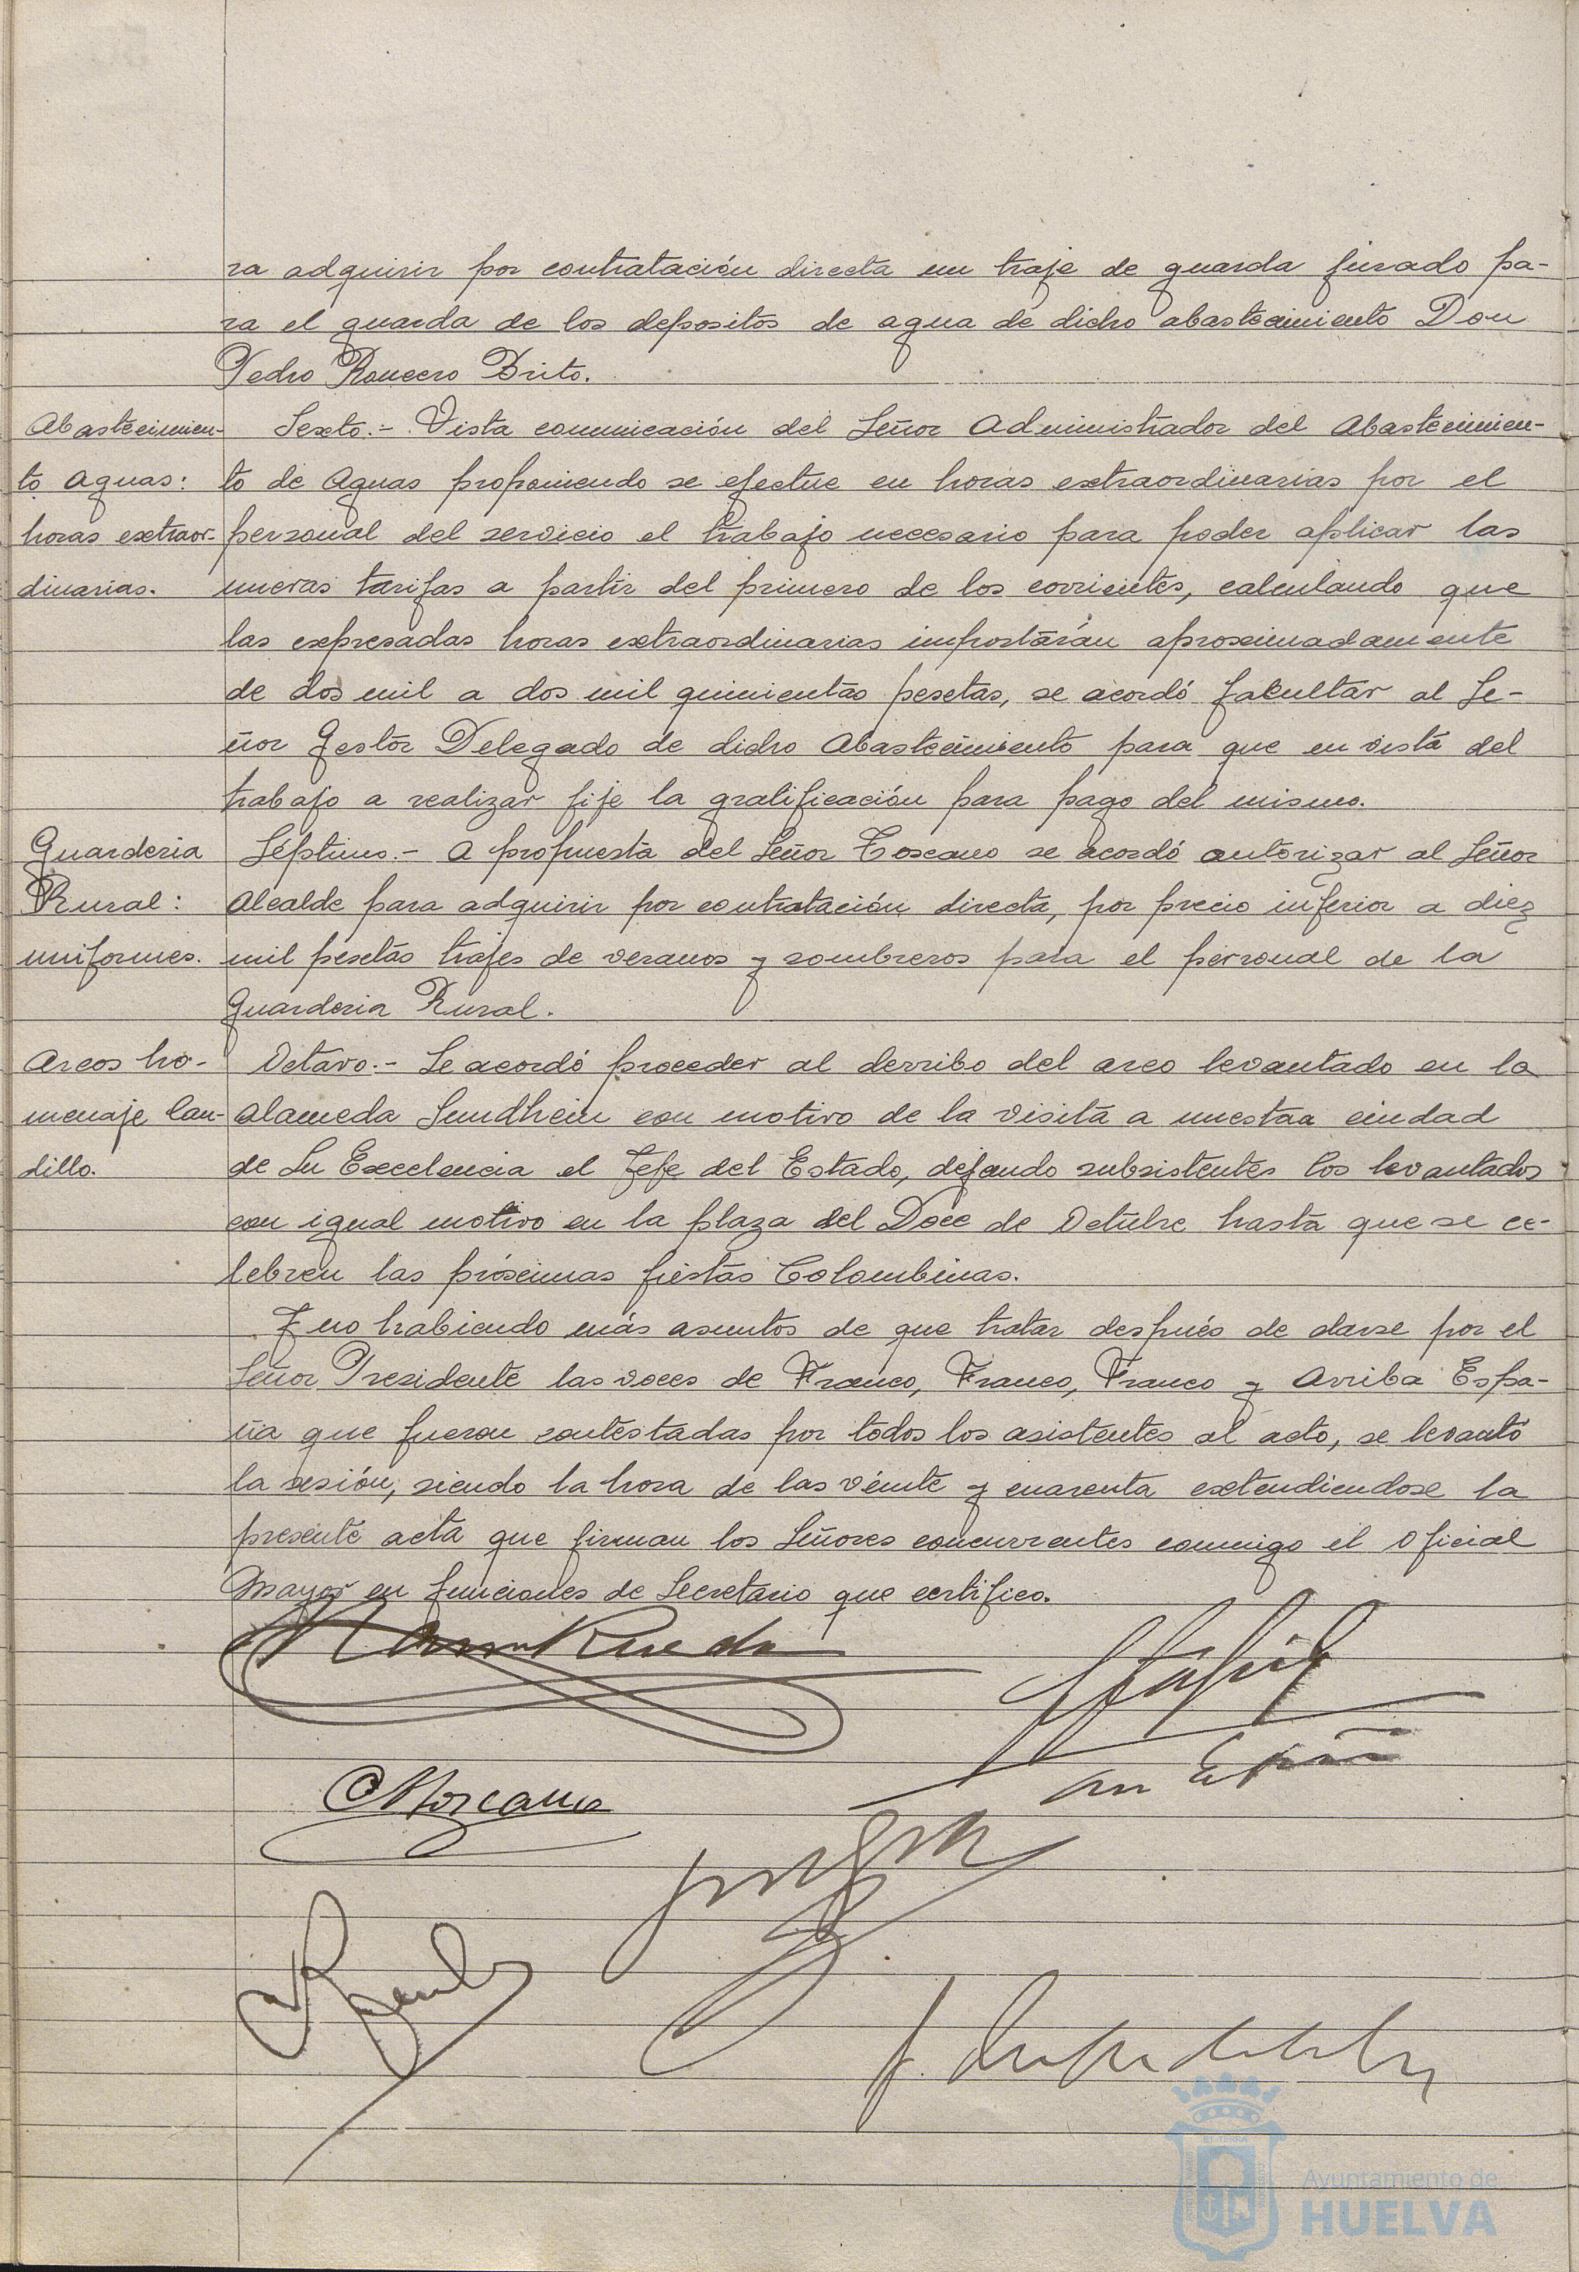 ra adquirir por contratación directa un traje de guarda jurado pa-
ra el guarda de los depositos de agua de dicho abastecimiento Don
Pedro Romero Brito.
Abastecimien-
to Aguas:
horas extraor-
dinarias.
Sexto.- Vista comunicación del Señor Administrador del Abastecimien-
to de Aguas proponiendo se efectúe en horas extraordinarias por el
personal del servicio el trabajo necesario para poder aplicar las
nuevas tarifas a partir del primero de los corrientes, calculando que
las expresadas horas extraordinarias importarán aproximadamente
de dos mil a dos mil quinientas pesetas, se acordó facultar al Se-
ñor Gestor Delegado de dicho Abastecimiento para que en vista del
trabajo a realizar fije la gratificación para pago del mismo.
Guarderia
Rural:
uniformes.
Séptimo.- A propuesta del Señor Toscano se acordó autorizar al Señor
Alcalde para adquirir por contratación directa, por precio inferior a diez
mil pesetas trajes de veranos y sombreros para el personal de la
Guarderia Rural.
Arcos ho-
menaje Cau-
dillo.
Octavo.- Se acordó proceder al derribo del arco levantado en la
Alameda Sundhein con motivo de la visita a nuestaa ciudad
de Su Excelencia el Jefe del Estado, dejando subsistentes los levantados
con igual motivo en la plaza del Doce de Octubre hasta que se ce-
lebren las próximas fiestas Colombinas.
Y no habiendo más asuntos de que tratar después de darse por el
Señor Presidente las voces de Franco, Franco, Franco y Arriba Espa-
ña que fueron contestadas por todos los asistentes al acto, se levantó
la sesión, siendo la hora de las veinte y cuarenta extendiendose la
presente acta que firman los Señores concurrentes conmigo el Oficial
Mayor en funciones de Secretario que certifico.
Rueda
Toscano
Ayuntamiento de
HUELVA